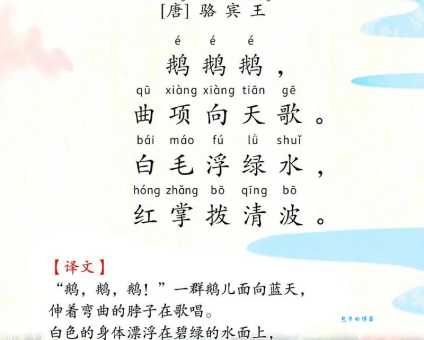 [唐] 骆 宾 王
é é é
鹅 鹅 鹅 ，
qū xiàng xiàng tiān gē
曲 项 向 天 歌 。
bái máo fú lǜ shuǐ
白 毛 浮 绿 水 ，
hóng zhǎng bō qīng bō
红 掌 拨 清 波 。
【译文】
“鹅，鹅，鹅！”一群鹅儿面向蓝天，
伸着弯曲的脖子在歌唱。
白色的身体漂浮在碧绿的水面上，